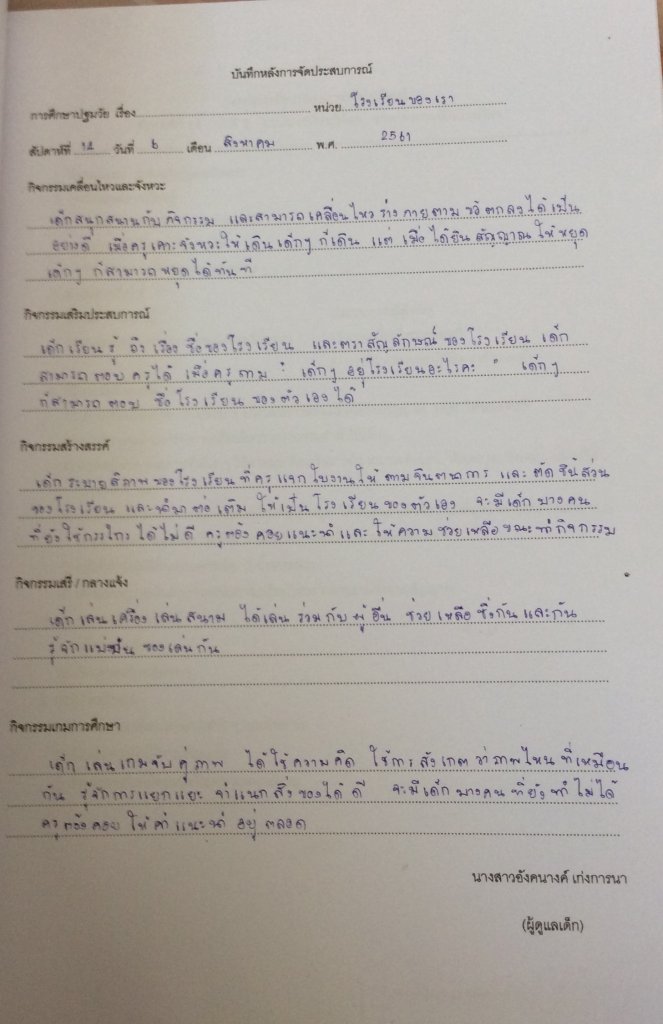 บันทึกหลังการจัดประสบการณ์
การศึกษาปฐมวัย เรื่อง................................................หน่วย...โรงเรียนของเรา
สัปดาห์ที่ 12 วันที่ 6 เดือน สิงหาคม พ.ศ. 2561
กิจกรรมเคลื่อนไหวและจังหวะ
เด็กสนุกสนานกับกิจกรรม และสามารถเคลื่อนไหวร่างกายตามข้อตกลงได้เป็น
อย่างดี เมื่อครูเคาะจังหวะให้เดินเด็กๆ ก็เดิน แต่เมื่อได้ยินสัญญาณให้หยุด
เด็กๆ ก็สามารถหยุดได้ทันที
กิจกรรมเสริมประสบการณ์
เด็กเรียนรู้ ถึง เรื่อง ชื่อของโรงเรียน และตราสัญลักษณ์ ของโรงเรียน เด็ก
สามารถตอบครูได้ เมื่อครูถาม " เด็กๆ อยู่โรงเรียนอะไรคะ " เด็กๆ
ก็สามารถตอบ ชื่อโรงเรียน ของตัวเองได้
กิจกรรมสร้างสรรค์
เด็กระบายสีภาพของโรงเรียนที่ครูแจกใบงานให้ตามจินตนาการ และตัดชิ้นส่วน
ของโรงเรียน และนำมาต่อเติม ให้เป็นโรงเรียนของตัวเอง จะมีเด็กบางคน
ที่ยังใช้กรรไกรได้ไม่ดี ครูต้องคอยแนะนำและให้ความช่วยเหลือขณะทำกิจกรรม
กิจกรรมเสรี / กลางแจ้ง
เด็กเล่นเครื่องเล่นสนาม ได้เล่นร่วมกับผู้อื่น ช่วยเหลือซึ่งกันและกัน
รู้จักแบ่งปันของเล่นกัน
กิจกรรมเกมการศึกษา
เด็กเล่นเกมจับคู่ภาพ ได้ใช้ความคิด ใช้การสังเกตว่าภาพไหนที่เหมือน
กัน รู้จักการแยกแยะ จำแนกสิ่งของได้ดี จะมีเด็กบางคนที่ยังทำไม่ได้
ครูต้องคอยให้คำแนะนำอยู่ตลอด
นางสาวอังคนางค์ เก่งการนา
(ผู้ดูแลเด็ก)